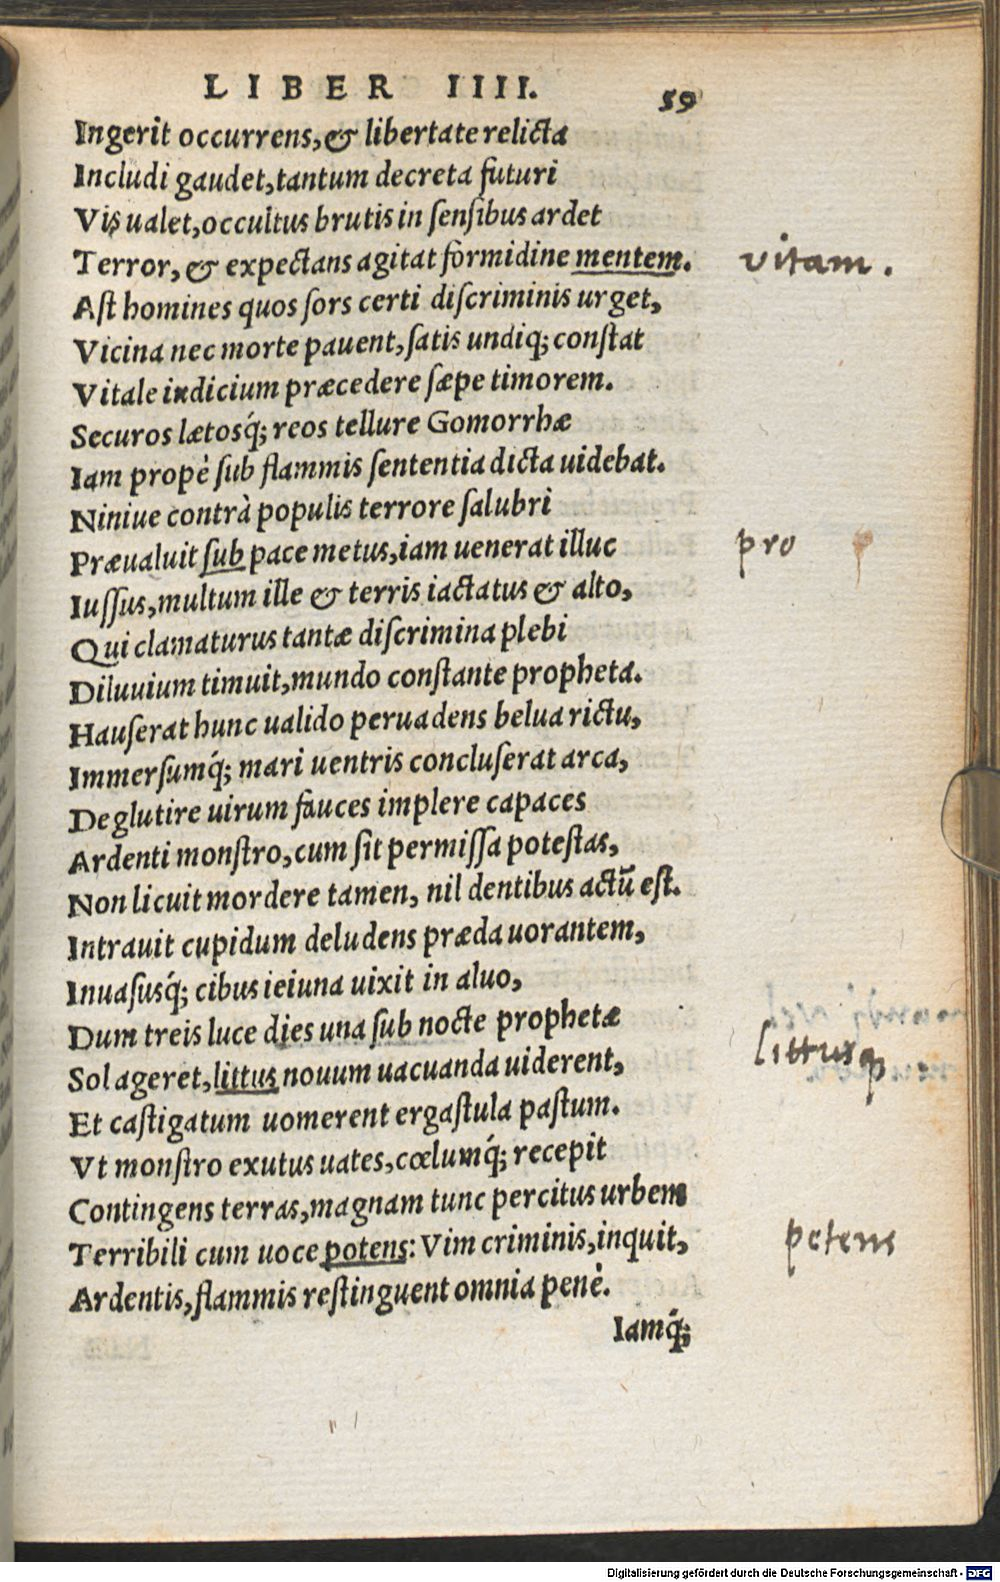 LIBER IIII.
59
Ingerit occurrens, & libertate relicta
Includi gaudet, tantum decreta futuri
Vis ualet, occultus brutis in sensibus ardet
Terror, & expectans agitat formidine mentem. vitam.
Ast homines quos sors certi discriminis urget,
Vicina nec morte pauent, satis undiq; constat
Vitale indicium præcedere sæpe timorem.
Securos lætosq́; reos tellure Gomorrhæ
Iam propè sub flammis sententia dicta uidebat.
Niniue contrà populis terrore salubri
Præualuit sub pace metus, iam uenerat illuc pro
Iussus, multum ille & terris iactatus & alto,
Qui clamaturus tantæ discrimina plebi
Diluuium timuit, mundo constante propheta.
Hauserat hunc ualido peruadens belua rictu,
Immersumq́; mari uentris concluserat arca,
Deglutire uirum fauces implere capaces
Ardenti monstro, cum sit permissa potestas,
Non licuit mordere tamen, nil dentibus actū est.
Intrauit cupidum deludens præda uorantem,
Inuasusq́; cibus ieiuna uixit in aluo,
Dum treis luce dies una sub nocte prophetæ
Sol ageret, littus nouum uacuanda uiderent, littusq
Et castigatum uomerent ergastula pastum.
Vt monstro exutus uates, cœlumq́; recepit
Contingens terras, magnam tunc percitus urbem
Terribili cum uoce potens: Vim criminis, inquit, petens
Ardentis, flammis restinguent omnia penè.
Iamq́;
Digitalisierung gefördert durch die Deutsche Forschungsgemeinschaft - DFG